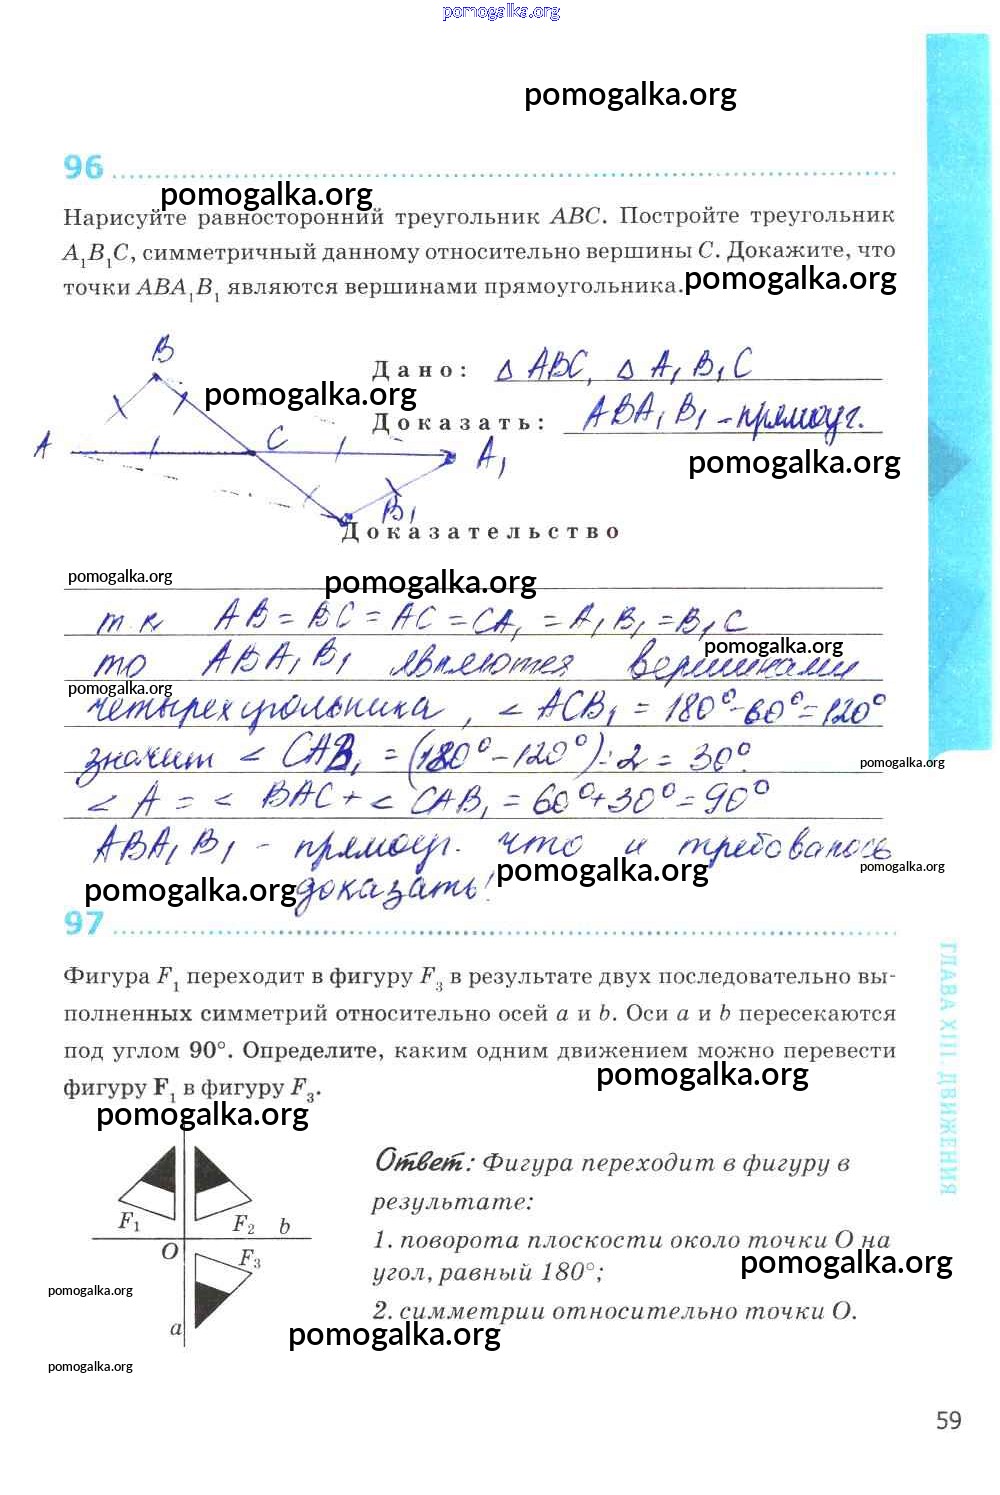 pomogalka.org
pomogalka.org
96
pomogalka.org
Нарисуйте равносторонний треугольник ABC. Постройте треугольник
A₁B₁C, симметричный данному относительно вершины C. Докажите, что
точки ABA₁B₁ являются вершинами прямоугольника.
pomogalka.org
B
Дано: △ ABC, △ A₁B₁C
pomogalka.org
Доказать: ABA₁B₁ - прямоуг.
A C A₁
pomogalka.org
B₁
Доказательство
pomogalka.org pomogalka.org
т.к. AB = BC = AC = CA₁ = A₁B₁ = B₁C
pomogalka.org
то ABA₁B₁ являются вершинами
pomogalka.org
четырехугольника, ∠ ACB₁ = 180° - 60° = 120°
значит ∠ CAB₁ = (180° - 120°) : 2 = 30°.
pomogalka.org
∠ A = ∠ BAC + ∠ CAB₁ = 60° + 30° = 90°
ABA₁B₁ - прямоуг. что и требовалось
pomogalka.org pomogalka.org
pomogalka.org доказать!
97
Фигура F₁ переходит в фигуру F₃ в результате двух последовательно вы-
полненных симметрий относительно осей a и b. Оси a и b пересекаются
под углом 90°. Определите, каким одним движением можно перевести
фигуру F₁ в фигуру F₃.
pomogalka.org
pomogalka.org
F₁ F₂ b
O F₃
a
Ответ: Фигура переходит в фигуру в
результате:
1. поворота плоскости около точки O на
угол, равный 180°;
pomogalka.org
2. симметрии относительно точки O.
pomogalka.org
pomogalka.org
pomogalka.org
ГЛАВА XIII. ДВИЖЕНИЯ
59